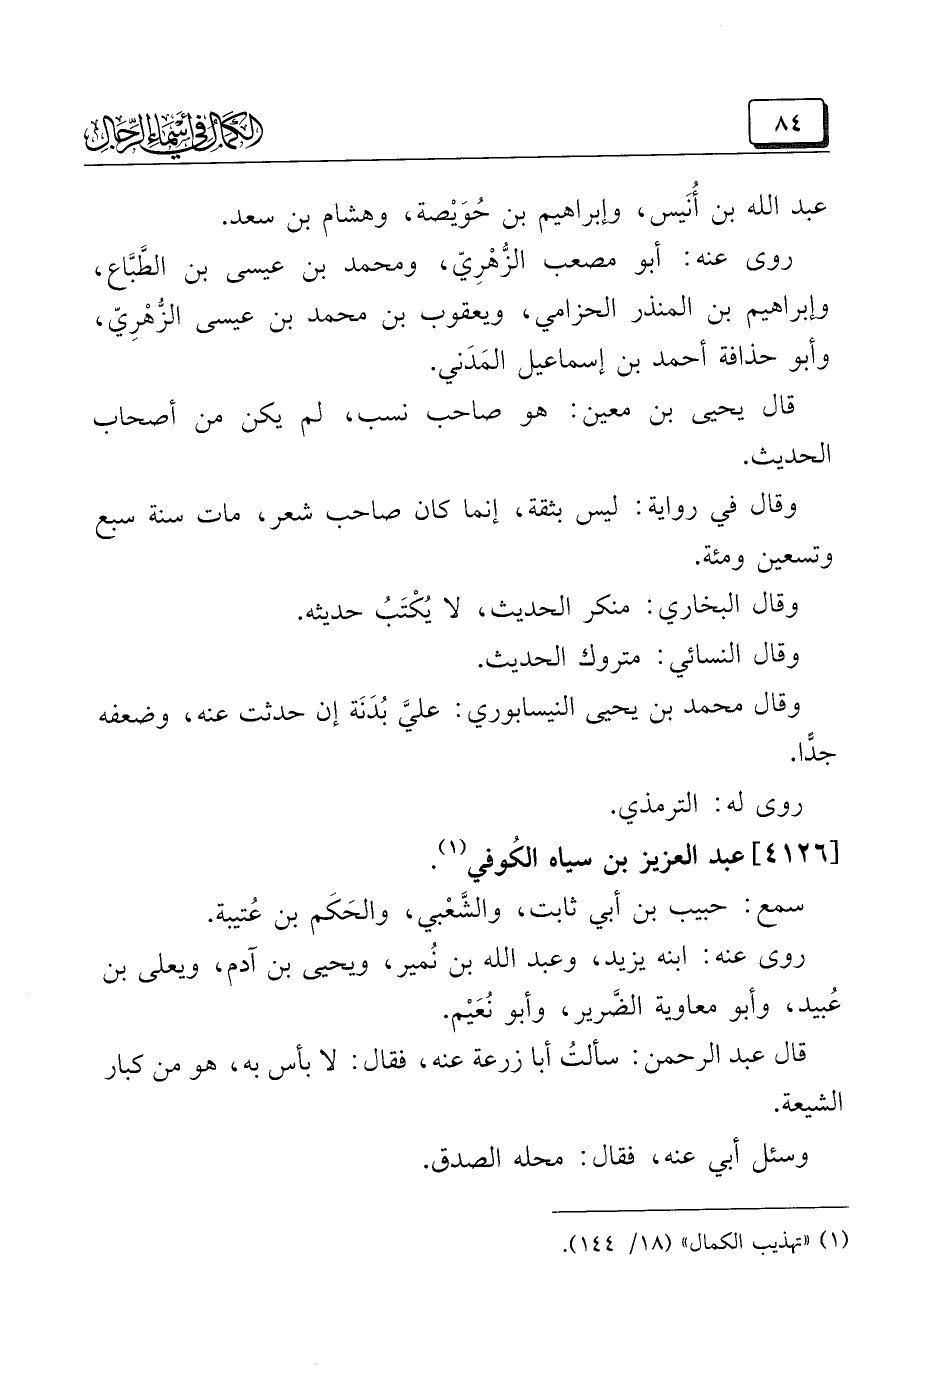 ٨٤
الكمال في أسماء الرجال
عبد الله بن أُنَيس، وإبراهيم بن حُوَيْصة، وهشام بن سعد.
روى عنه: أبو مصعب الزُّهْرِيّ، ومحمد بن عيسى بن الطَّبَّاع،
وإبراهيم بن المنذر الحزامي، ويعقوب بن محمد بن عيسى الزُّهْرِيّ،
وأبو حذافة أحمد بن إسماعيل المَدَني.
قال يحيى بن معين: هو صاحب نسب، لم يكن من أصحاب
الحديث.
وقال في رواية: ليس بثقة، إنما كان صاحب شعر، مات سنة سبع
وتسعين ومئة.
وقال البخاري: منكر الحديث، لا يُكْتَبُ حديثه.
وقال النسائي: متروك الحديث.
وقال محمد بن يحيى النيسابوري: عليَّ بُدَنَة إن حدثت عنه، وضعفه
جدًّا.
روى له: الترمذي.
[٤١٢٦] عبد العزيز بن سياه الكُوفي(١).
سمع: حبيب بن أبي ثابت، والشَّعْبي، والحَكَم بن عُتيبة.
روى عنه: ابنه يزيد، وعبد الله بن نُمير، ويحيى بن آدم، ويعلى بن
عُبيد، وأبو معاوية الضَّرير، وأبو نُعَيْم.
قال عبد الرحمن: سألتُ أبا زرعة عنه، فقال: لا بأس به، هو من كبار
الشيعة.
وسئل أبي عنه، فقال: محله الصدق.
(١) «تهذيب الكمال» (١٨/ ١٤٤).